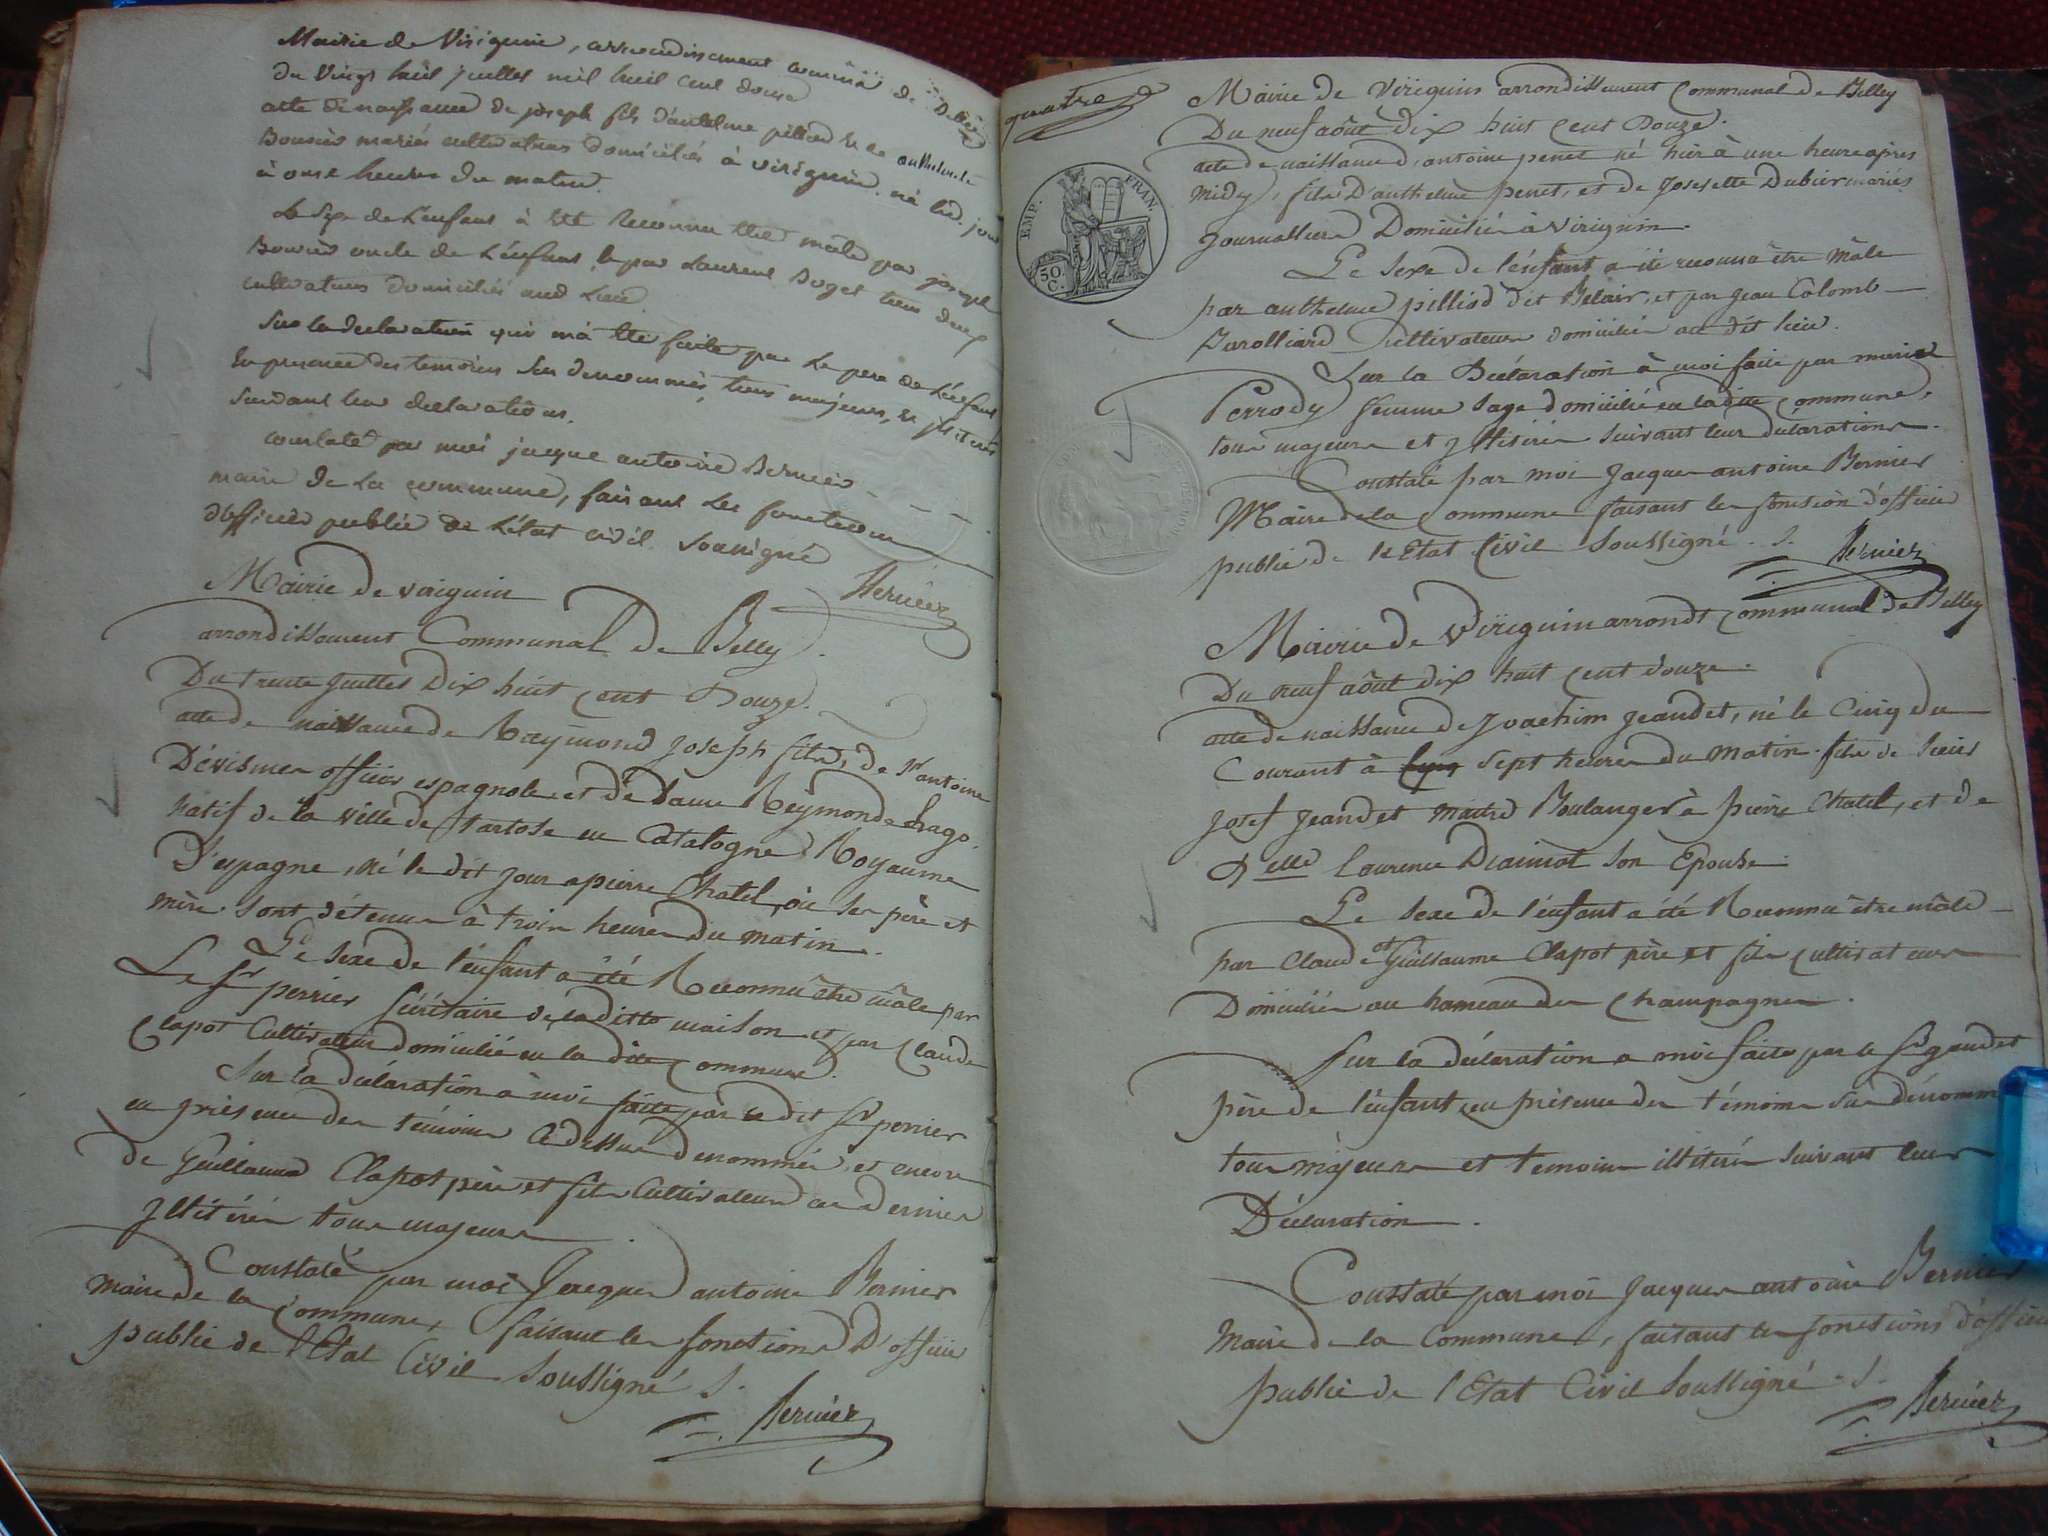 Mairie de Virignin, arrondissement communal de Belley
du vingt huit juillet mil huit cent douze
acte de naissance de joseph fils d'antelme pilliod et de
mariés cultivateurs domiciliés à virignin, né led. jour
à onze heures du matin.
Le Sexe de L'enfant à été Reconnu être male par joseph
oncle de L'enfant, & par Laurent Boget tous deux
cultivateurs domiciliés aud Lieu
Sur la declaration qui m'a été faite par Le pere de L'enfant
En presence des temoins sus denommés, tous majeurs, &
Suivant leur declaration.
constaté par moi jacque antoine Bernier
maire de La commune, faisant Les fonctions
d'officier public de L'état civil soussigné
Bernier
Mairie de virignin
arrondissement Communal de Belley
Du trente Juillet Dix huit Cent Douze.
acte de naissance de Raymond Joseph fils, de Sr antoine
Dévismes officier espagnole et de Dame Reymonde Lrago,
natif de la ville de tartose en Catalogne Royaume
D'espagne, né le dit jour a pierre Chatel, où ses père et
mère sont détenus à trois heures du matin.
Le sexe de l'enfant a été Reconnu être mâle par
Le Sr perrier sécrétaire de la ditte maison et par Claude
Clapot Cultivateur domicilié en la dite Commune.
Sur la déclaration à moi faite par le dit Sr perrier
en présence des témoins cidessus denommés et encore
de Guillaume Clapot père et fils Cultivateurs ces derniers
Jllitérés tous majeurs
Constaté par moi Jacques antoine Bernier
Maire de la Commune, faisant les fonctions D'officier
public de l'Etat Civil Soussigné S.
Bernier
quatre
EMP. FRAN.
50 C.
Mairie de Virignin arrondissement Communal de Belley
Du neuf août dix huit Cent Douze.
acte de naissance d'antoine penet né hier à une heure après
midy, fils D'anthelme penet, et de Josette Dubier mariés
Journalliers Domiciliés à Virignin.
Le sexe de l'enfant a été reconnu être mâle
par anthelme pilliod dit Belair, et par Jean Colomb
Cultivateurs domiciliés au dit lieu.
Sur la Déclaration à moi faite par marie
Perrody femme Sage domicilié en la dite Commune,
tous majeurs et Jllitérés suivant leur déclaration.
Constaté par moi Jacques antoine Bernier
Maire de la Commune faisant les fonction d'officier
public de l'Etat Civil Soussigné. S.
Bernier
Mairie de Virignin arrondt Communal de Belley
Du neuf août dix huit Cent douze.
acte de naissance de Joachim Jeandet, né le Cinq du
Courant à Cinq sept heures du matin. fils de Sieur
Josef Jeandet maitre Boulanger à pierre Chatel, et de
Delle Laurence Drainot son Epouse.
Le sexe de l'enfant a été Reconnu être mâle
par Claude et Guillaume Clapot père et fils Cultivateurs
Domiciliés au hameau de Champagne.
Sur la déclaration a moi faite par le Sr gandet
père de l'enfant, en présence des témoins sus dénommés
tous majeurs et temoins illitérés suivant leur
Déclaration.
Constaté par moi Jacques antoine Bernier
Maire de la Commune, faisant les fonctions d'officier
public de l'Etat Civil soussigné. S.
Bernier